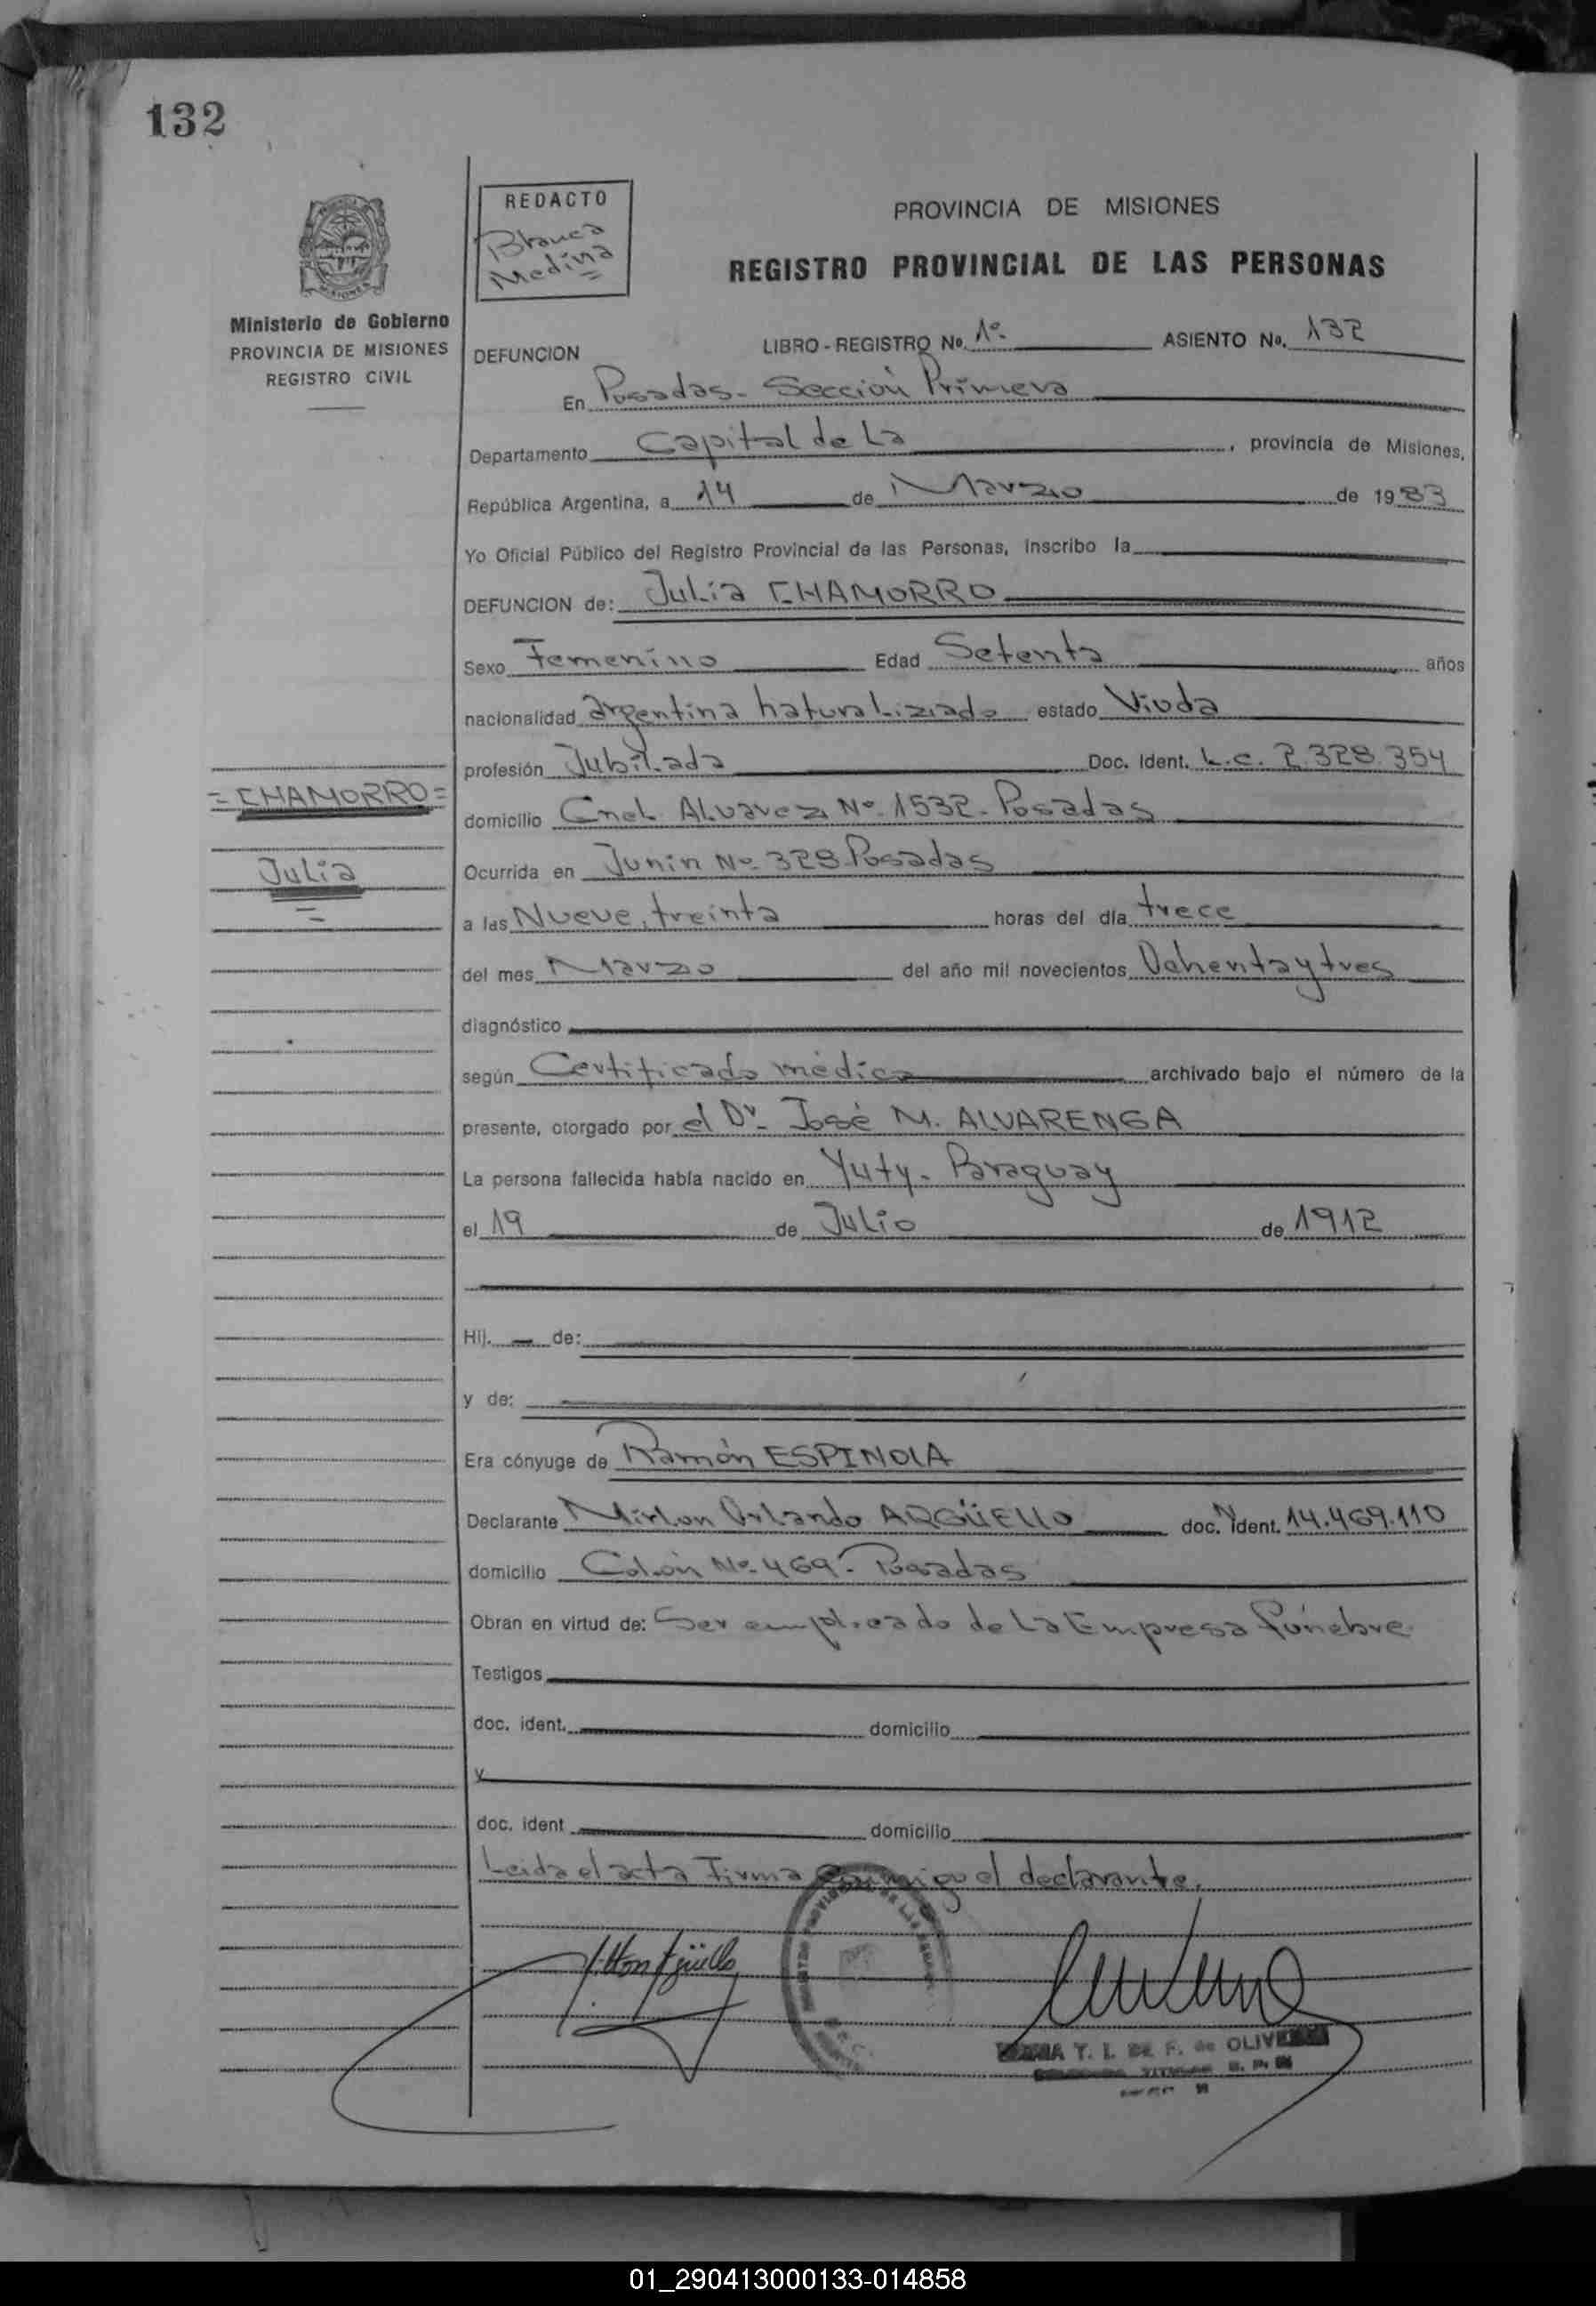 132
REDACTO
Blanca
Medina
PROVINCIA DE MISIONES
REGISTRO PROVINCIAL DE LAS PERSONAS
Ministerio de Gobierno
PROVINCIA DE MISIONES
REGISTRO CIVIL
DEFUNCION LIBRO - REGISTRO No. 1º ASIENTO No. 132
En Posadas - Sección Primera
Departamento Capital de La , provincia de Misiones,
República Argentina, a 14 de Marzo de 1983
Yo Oficial Público del Registro Provincial de las Personas, inscribo la
DEFUNCION de: Julia CHAMORRO
Sexo Femenino Edad Setenta años
nacionalidad argentina naturalizado estado Viuda
profesión Jubilada Doc. Ident. L.C. 2.328.354
= CHAMORRO =
domicilio Cnel. Alvarez Nº 1532 - Posadas
Julia
Ocurrida en Junín Nº 328 Posadas
a las Nueve, treinta horas del día trece
del mes Marzo del año mil novecientos Ochenta y tres
diagnóstico
según Certificado médico archivado bajo el número de la
presente, otorgado por el Dr. José M. ALVARENGA
La persona fallecida había nacido en Yuty - Paraguay
el 19 de Julio de 1912
Hij. de:
y de:
Era cónyuge de Ramón ESPINOLA
Declarante Milton Orlando ARGÜELLO doc. ident. 14.469.110
domicilio Colón Nº 469 - Posadas
Obran en virtud de: Ser empleado de la Empresa Fúnebre
Testigos
doc. ident. domicilio
y
doc. ident domicilio
Leida el acta Firma conmigo el declarante.
T. I. DE F. de OLIVEIRA
01_290413000133-014858